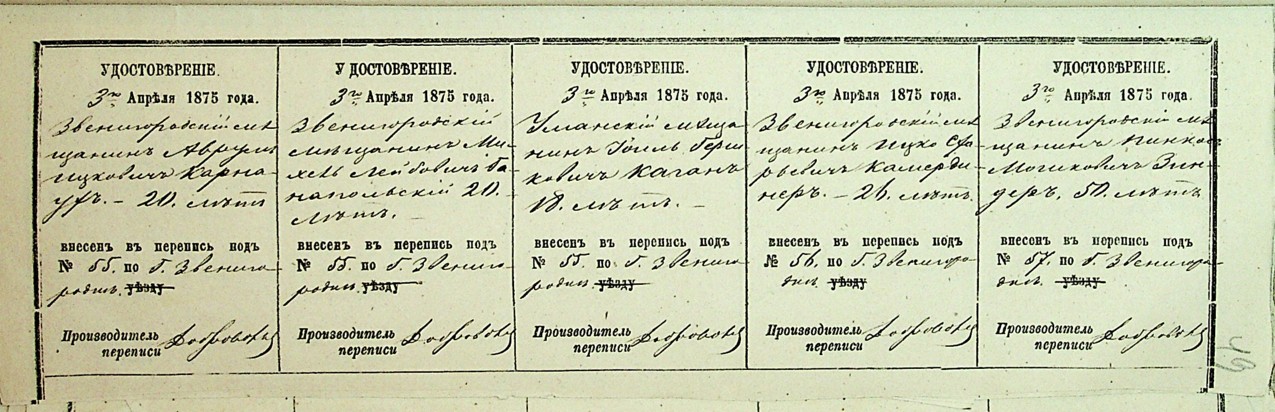 УДОСТОВѢРЕНІЕ.
3го Апрѣля 1875 года.
Звенигородскій мѣ-
щанинъ Аврумъ
Ицковичъ Карна-
ухъ. – 20. лѣтъ
внесенъ въ перепись подъ
№ 55. по г. Звениго-
родкѣ уѣзду
Производитель
переписи
У ДОСТОВѢРЕНІЕ.
3го Апрѣля 1875 года.
Звенигородскій
мѣщанинъ Ми-
хель Лейбовичъ
напольскій 20.
лѣтъ. –
внесенъ въ перепись подъ
№ 55. по г. Звениго-
родкѣ уѣзду
Производитель
переписи
УДОСТОВѢРЕНІЕ.
3го Апрѣля 1875 года.
Уманскій мѣща-
нинъ Іойль Герш-
ковичъ Каганъ
18. лѣтъ. –
внесенъ въ перепись подъ
№ 55. по г. Звениго-
родкѣ уѣзду
Производитель
переписи
УДОСТОВѢРЕНІЕ.
3го Апрѣля 1875 года.
Звенигородскій мѣ-
щанинъ Ицко
Камерди-
неръ. – 26. лѣтъ.
внесенъ въ перепись подъ
№ 56. по г. Звенигоро-
дкѣ уѣзду
Производитель
переписи
УДОСТОВѢРЕНІЕ.
3го Апрѣля 1875 года.
Звенигородскій мѣ-
щанинъ Пинхасъ
Мошковичъ Зин-
деръ. 50. лѣтъ
внесенъ въ перепись подъ
№ 57. по г. Звенигоро-
дкѣ уѣзду
Производитель
переписи